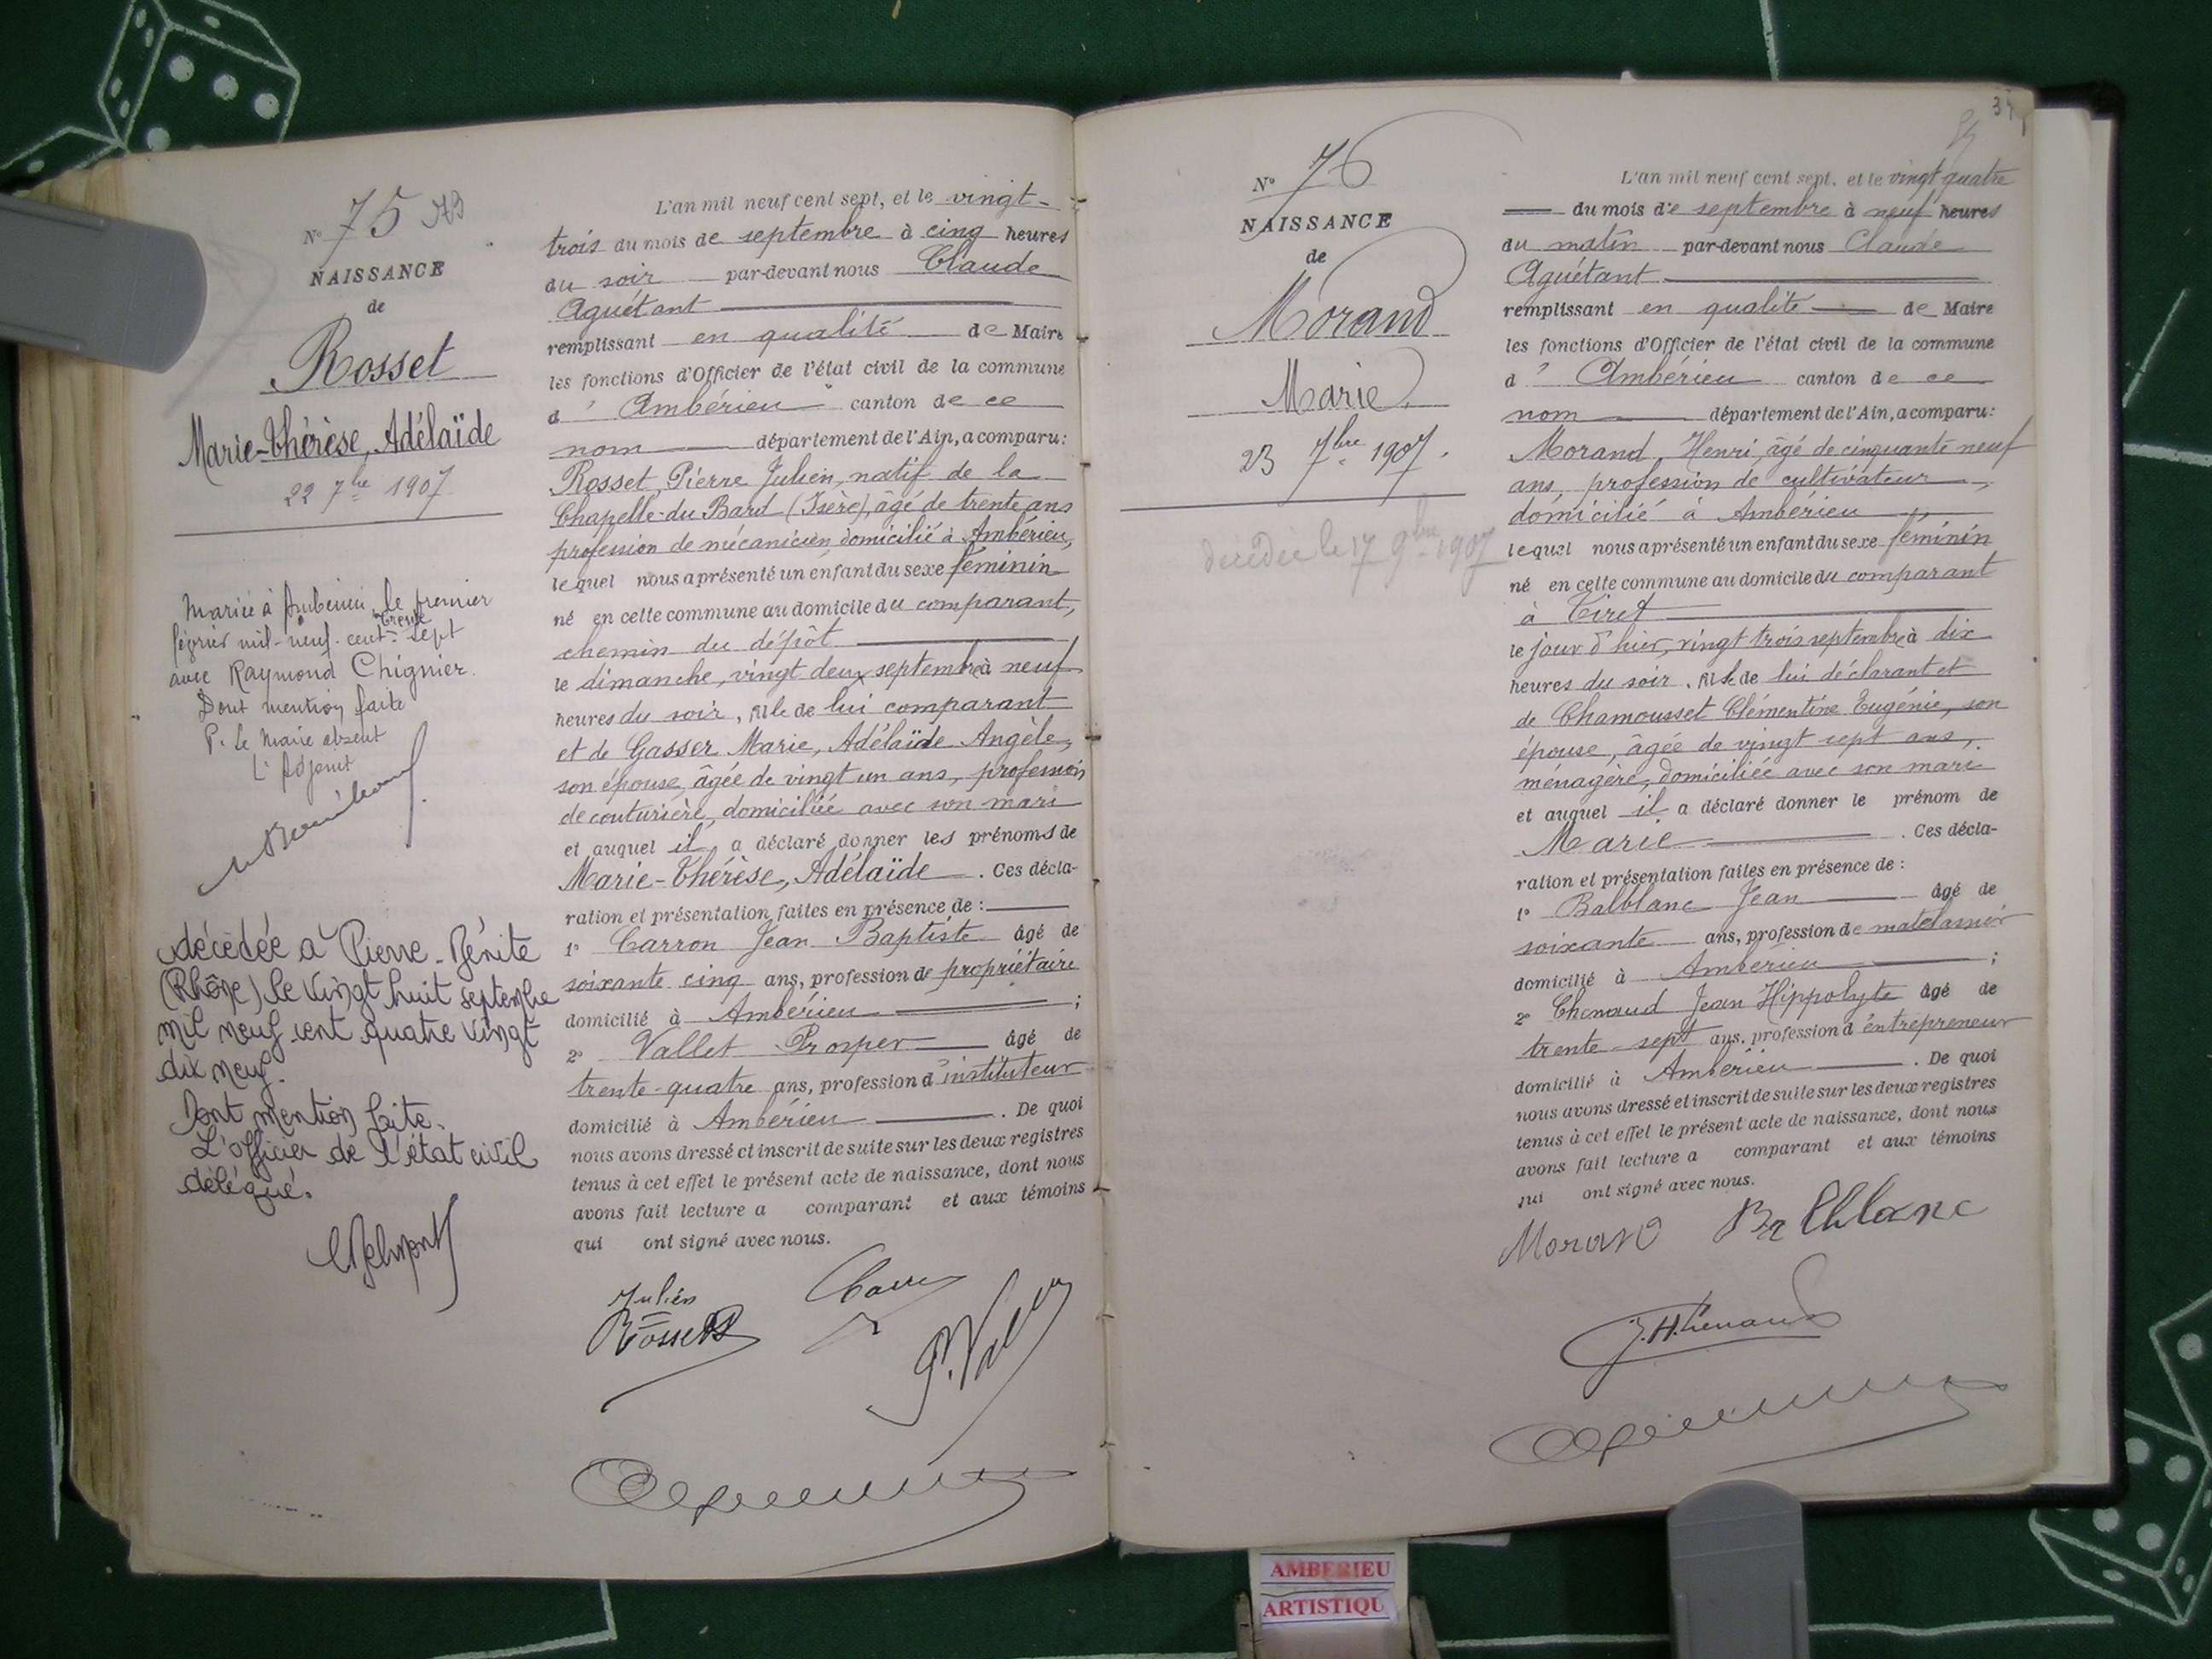 N° 75
NAISSANCE
de
Rosset
Marie-Thérèse, Adélaïde
22 7bre 1907
Mariée à Ambérieu, le premier
février mil-neuf-cent-trente sept
avec Raymond Chignier.
Dont mention faite
P. le Maire absent
L'Adjoint
décédée à Pierre-Bénite
(Rhône) le vingt huit septembre
mil neuf cent quatre vingt
dix neuf.
Dont mention faite.
L'officier de l'état civil
délégué.
L'an mil neuf cent sept, et le vingt-
trois du mois de septembre à cinq heures
du soir par-devant nous Claude
Aguétant
remplissant en qualité de Maire
les fonctions d'Officier de l'état civil de la commune
d' Ambérieu canton de ce
nom département de l'Ain, a comparu:
Rosset, Pierre Julien, natif de la
Chapelle-du Bard (Isère), âgé de trente ans
profession de mécanicien, domicilié à Ambérieu,
lequel nous a présenté un enfant du sexe féminin
né en cette commune au domicile du comparant,
chemin du dépôt
le dimanche, vingt deux septembre à neuf
heures du soir, fille de lui comparant
et de Gasser Marie, Adélaïde Angèle,
son épouse, âgée de vingt un ans, profession
de couturière, domiciliée avec son mari
et auquel il a déclaré donner les prénoms de
Marie-Thérèse, Adélaïde. Ces décla-
ration et présentation faites en présence de :
1° Carron Jean Baptiste âgé de
soixante cinq ans, profession de propriétaire
domicilié à Ambérieu ;
2° Vallet Prosper âgé de
trente-quatre ans, profession d'instituteur
domicilié à Ambérieu. De quoi
nous avons dressé et inscrit de suite sur les deux registres
tenus à cet effet le présent acte de naissance, dont nous
avons fait lecture a comparant et aux témoins
qui ont signé avec nous.
Julien
Rosset
P. Vallet
N° 76
NAISSANCE
de
Morand
Marie
23 7bre 1907.
décédée le 17 9bre 1907
L'an mil neuf cent sept, et le vingt quatre
du mois de septembre à neuf heures
du matin par-devant nous Claude
Aguétant
remplissant en qualité de Maire
les fonctions d'Officier de l'état civil de la commune
d' Ambérieu canton de ce
nom département de l'Ain, a comparu:
Morand, Henri, âgé de cinquante neuf
ans, profession de cultivateur,
domicilié à Ambérieu
lequel nous a présenté un enfant du sexe féminin
né en cette commune au domicile du comparant
à Tiret
le jour d'hier, vingt trois septembre à dix
heures du soir, fille de lui déclarant et
de Chamousset Clémentine Eugénie, son
épouse, âgée de vingt sept ans,
ménagère, domiciliée avec son mari
et auquel il a déclaré donner le prénom de
Marie. Ces décla-
ration et présentation faites en présence de :
1° Balblanc Jean âgé de
soixante ans, profession de matelassier
domicilié à Ambérieu ;
2° Chenaud Jean Hippolyte âgé de
trente-sept ans, profession d'entrepreneur
domicilié à Ambérieu. De quoi
nous avons dressé et inscrit de suite sur les deux registres
tenus à cet effet le présent acte de naissance, dont nous
avons fait lecture a comparant et aux témoins
qui ont signé avec nous.
Morand Balblanc
J.H.Chenaud
AMBERIEU
ARTISTIQU